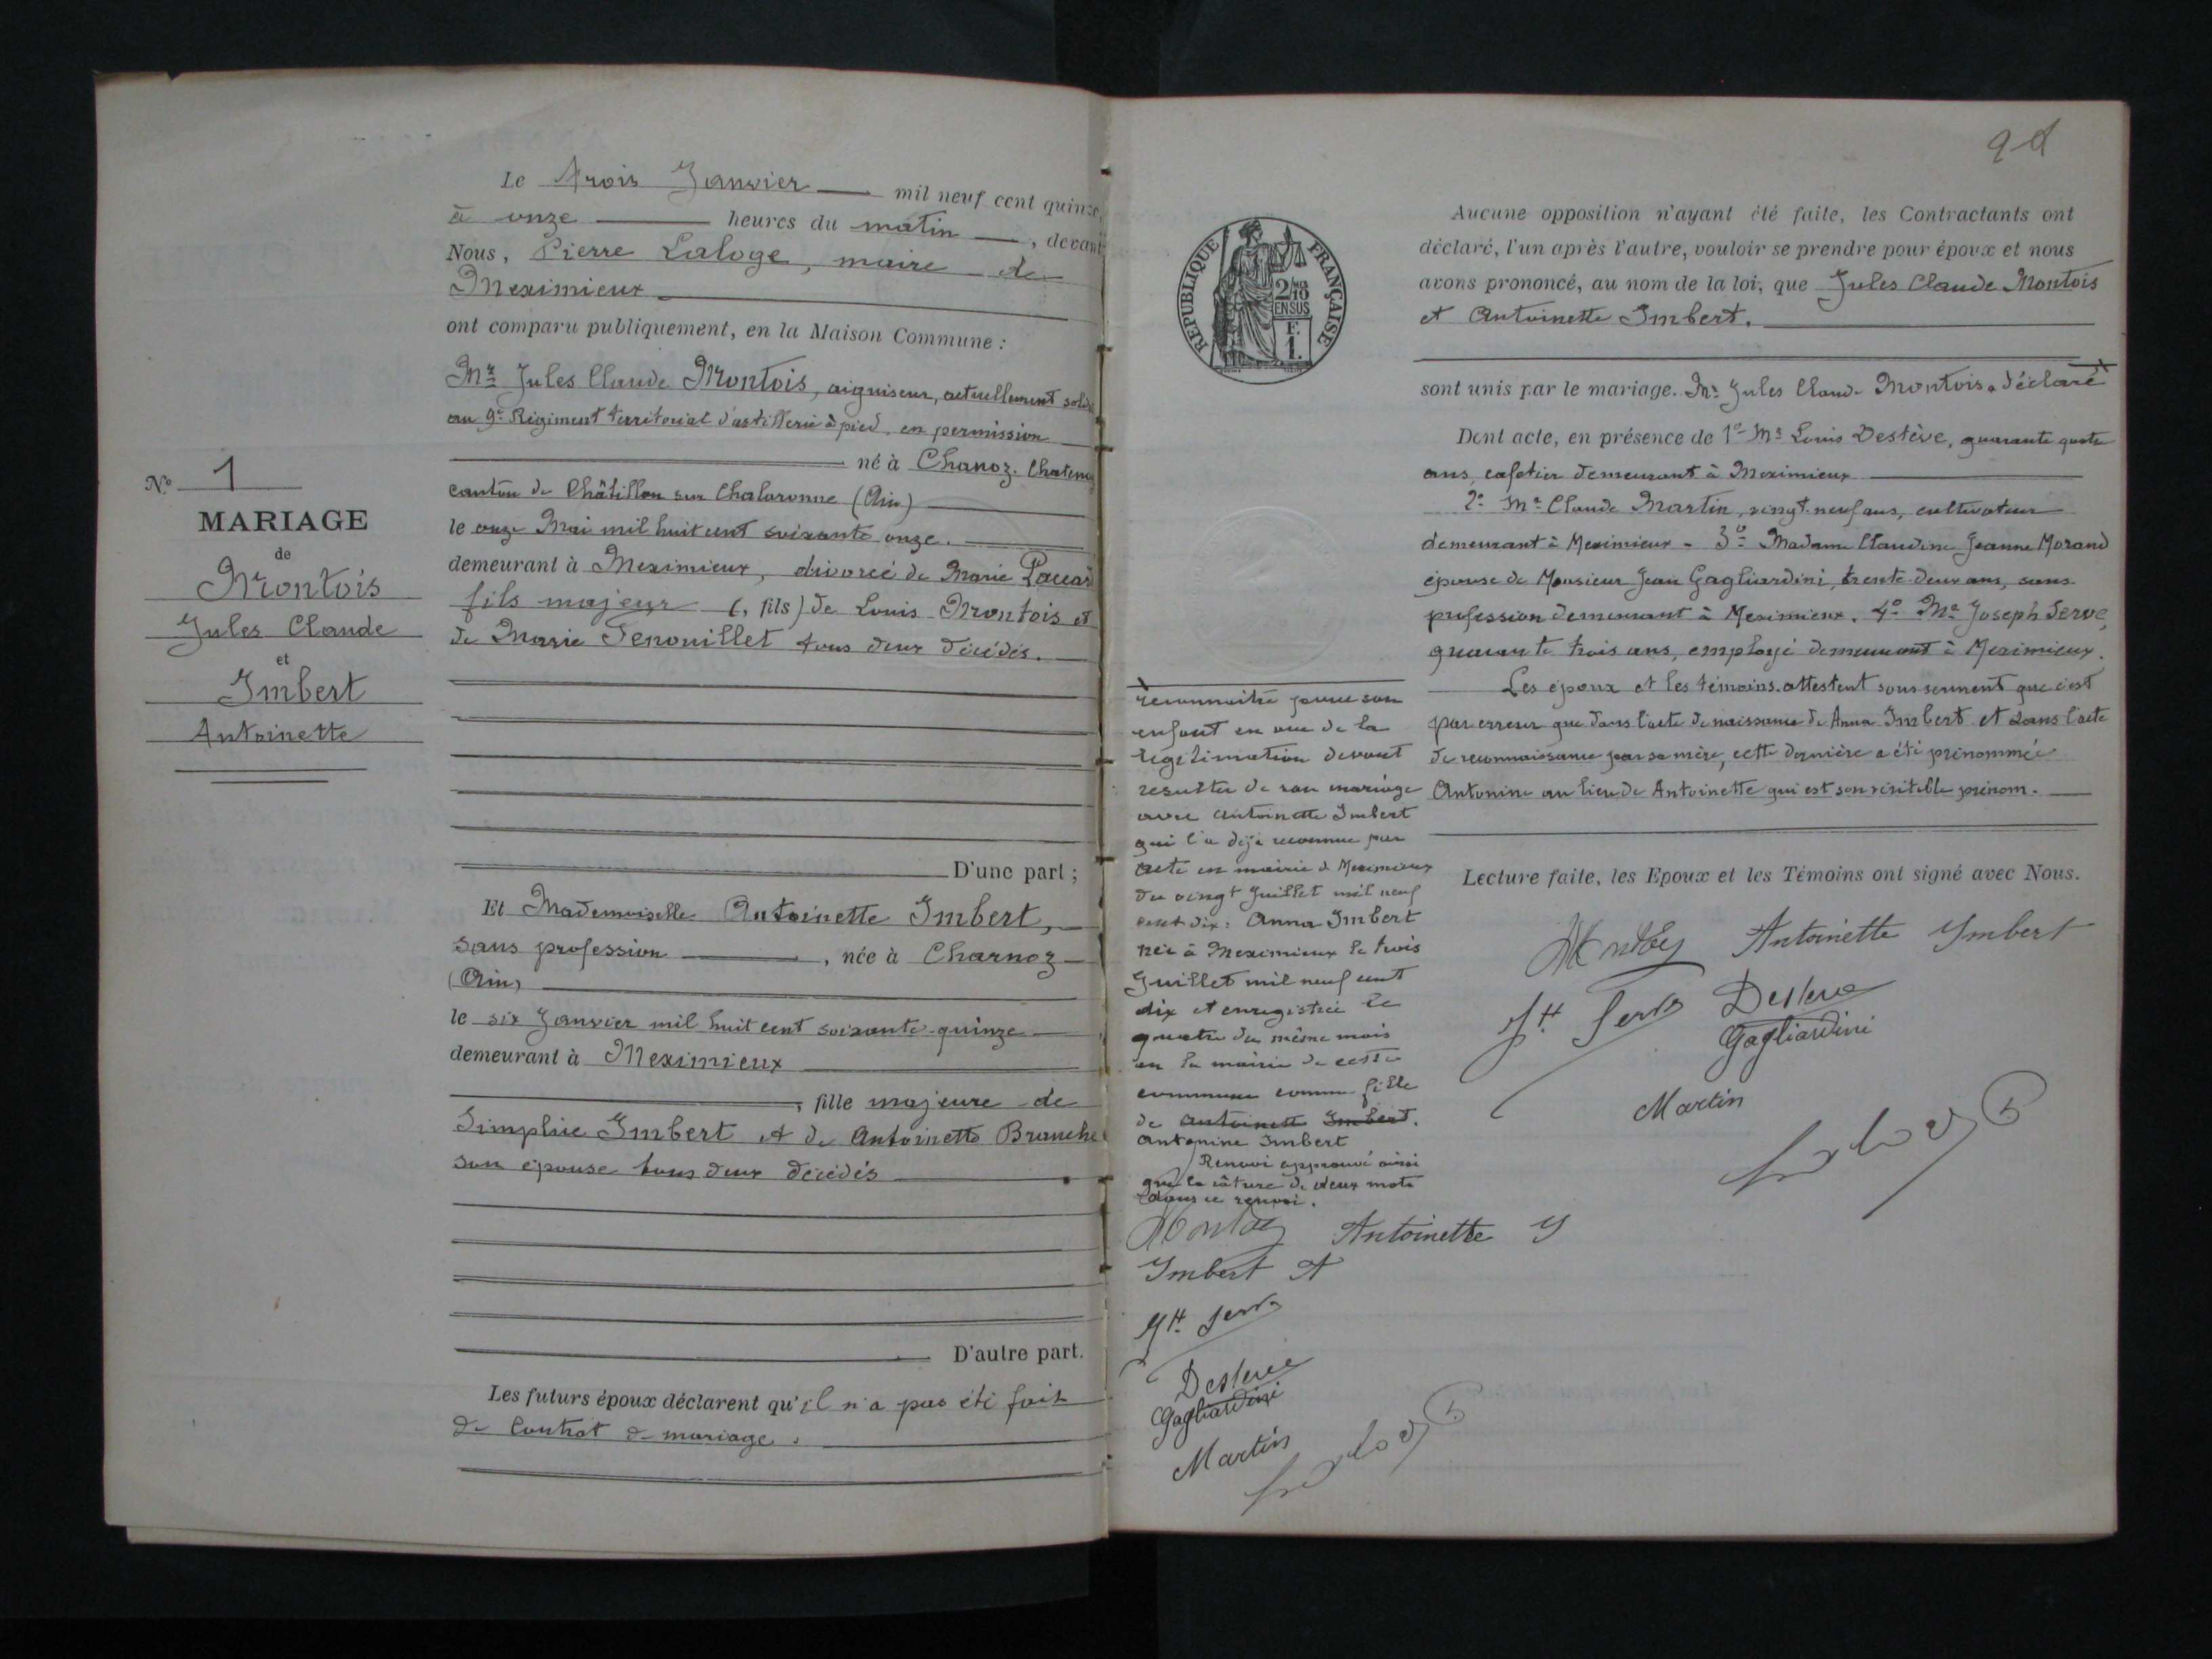 N° 1
MARIAGE
de
Montois
Jules Claude
et
Imbert
Antoinette
Le trois Janvier mil neuf cent quinze,
à onze heures du matin, devant
Nous, Pierre Laloge, maire de
Meximieux
ont comparu publiquement, en la Maison Commune :
Mr Jules Claude Montois, aiguiseur, actuellement soldat
au 9e Régiment territorial d'artillerie à pied, en permission
né à Chanoz-Chatenay
canton de Châtillon sur Chalaronne (Ain)
le onze Mai mil huit cent soixante onze.
demeurant à Meximieux, divorcé de Marie
fils majeur (, fils) de Louis Montois et
de Marie Fenouillet tous deux décédés.
D'une part ;
Et Mademoiselle Antoinette Imbert,
sans profession, née à Charnoz
(Ain)
le six Janvier mil huit cent soixante-quinze
demeurant à Meximieux
, fille majeure de
Simplice Imbert et de Antoinette Branche
son épouse tous deux décédés
D'autre part.
Les futurs époux déclarent qu'il n'a pas été fait
de Contrat de mariage.
RÉPUBLIQUE FRANÇAISE
2/10
EN SUS
F.
1.
Aucune opposition n'ayant été faite, les Contractants ont
déclaré, l'un après l'autre, vouloir se prendre pour époux et nous
avons prononcé, au nom de la loi, que Jules Claude Montois
et Antoinette Imbert.
sont unis par le mariage. Mr Jules Claude Montois a déclaré
Dont acte, en présence de 1° Mr Louis Destève, quarante quatre
ans, cafetier demeurant à Meximieux
2° Mr Claude Martin, vingt-neuf ans, cultivateur
demeurant à Meximieux - 3° Madame Claudine Jeanne Morand
épouse de Monsieur Jean Gagliardini, trente-deux ans, sans
profession demeurant à Meximieux. 4° Mr Joseph Serve,
quarante trois ans, employé demeurant à Meximieux.
Les époux et les témoins attestent sous serment que c'est
par erreur que dans l'acte de naissance de Anna Imbert et dans l'acte
de reconnaissance par sa mère, cette dernière a été prénommée
Antonine au lieu de Antoinette qui est son véritable prénom.
Lecture faite, les Epoux et les Témoins ont signé avec Nous.
Antoinette Imbert
Jh Serve
Desteve
Gagliardini
Martin
reconnaître pour son
enfant en vue de la
légitimation devant
résulter de son mariage
avec Antoinette Imbert
qui l'a déjà reconnue par
acte en mairie de Meximieux
du vingt Juillet mil neuf
cent dix : Anna Imbert
née à Meximieux le trois
Juillet mil neuf cent
dix et enregistrée le
quatre du même mois
en la mairie de cette
commune comme fille
de Antoinette Imbert.
Antonine Imbert
Renvoi approuvé ainsi
que la rature de deux mots
dans ce renvoi.
Antoinette I
Imbert A
Jh Serve
Desteve
Gagliardini
Martin